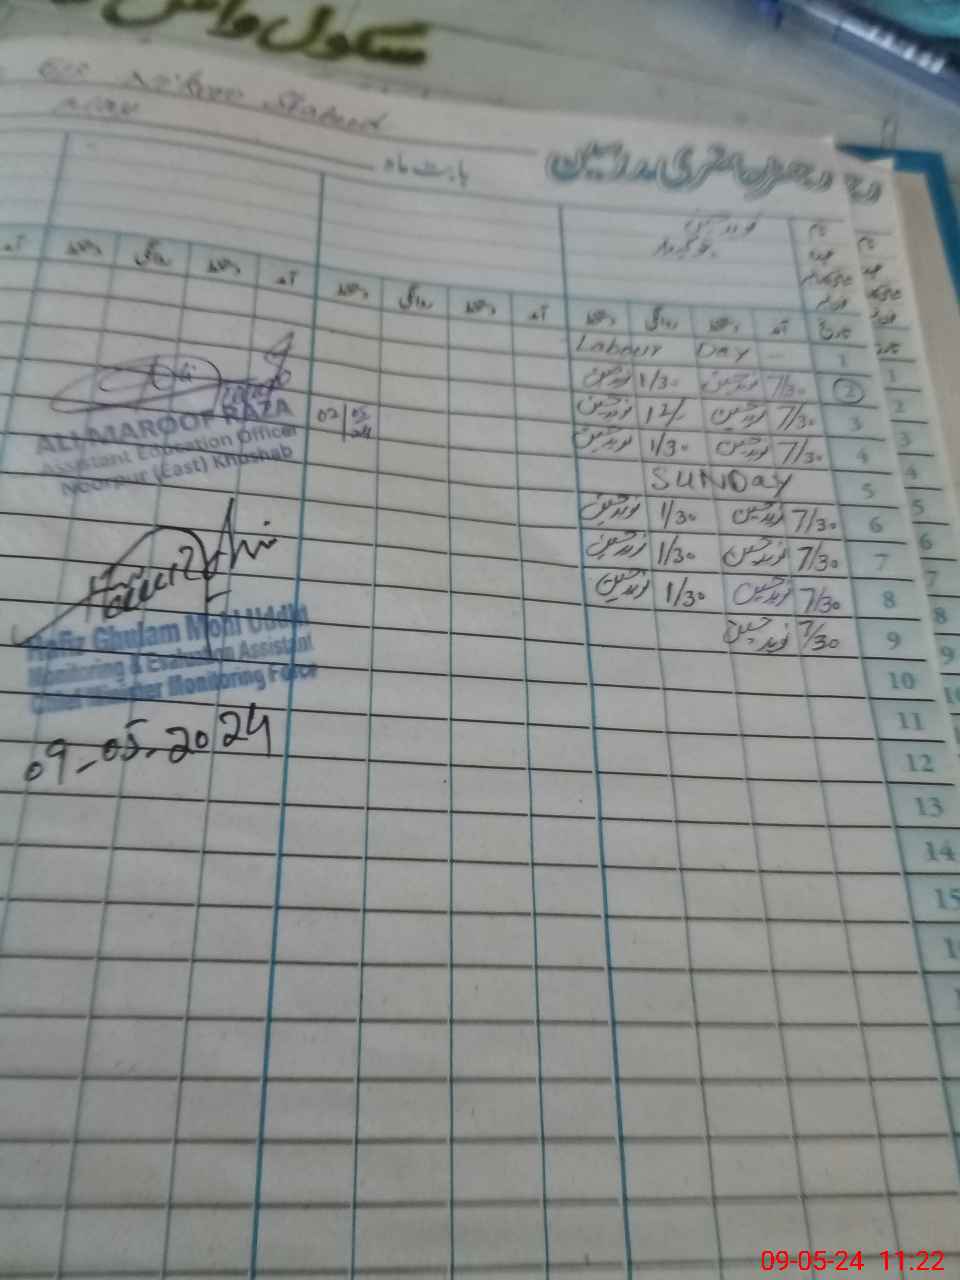 سکول
رجسٹر حاضری مدرسین
بابت ماہ
نام
عہدہ
تاریخ
آمد دستخط روانگی دستخط آمد دستخط روانگی دستخط آمد دستخط روانگی دستخط
1 Labour Day
2 7/30 نوید حسین 1/30 نوید حسین
3 7/30 نوید حسین 12/- نوید حسین
4 7/30 نوید حسین 1/30 نوید حسین
5 SUNDAY
6 7/30 نوید حسین 1/30 نوید حسین
7 7/30 نوید حسین 1/30 نوید حسین
8 7/30 نوید حسین 1/30 نوید حسین
9 7/30 نوید حسین
10
11
12
13
14
15
02/05/24
ALI MAROOF RAZA
Assistant Education Officer
Noorpur (East) Khushab
Hafiz Ghulam Mohi Uddin
Monitoring & Evaluation Assistant
Chief Minister Monitoring Force
09-05-2024
09-05-24 11:22